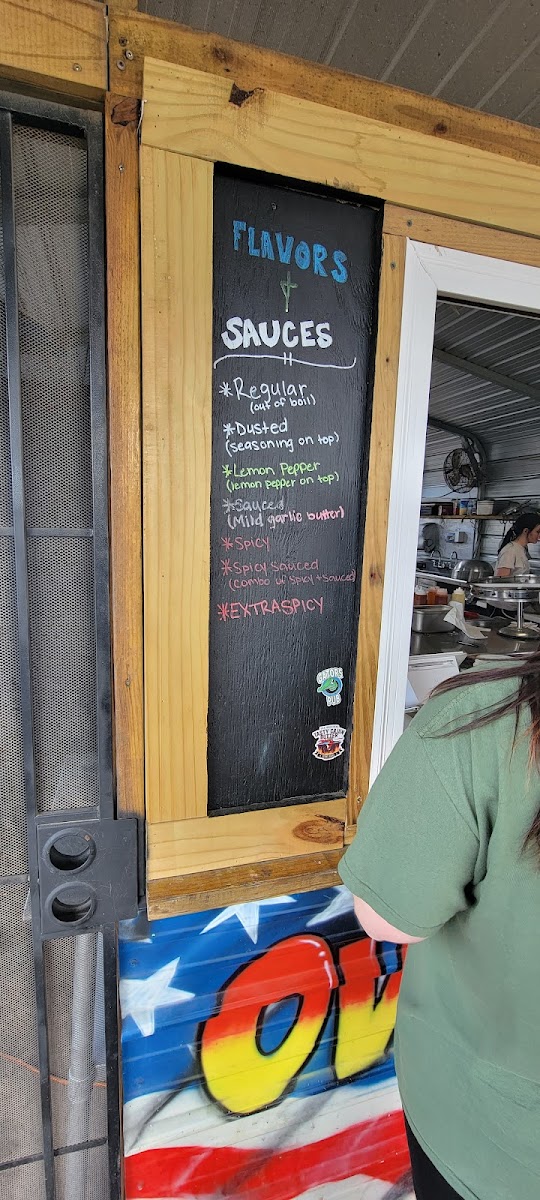 FLAVORS
+
SAUCES
*Regular
(out of boil)
*Dusted
(seasoning on top)
*Lemon Pepper
(lemon pepper on top)
*Sauced
(Mild garlic butter)
*Spicy
*Spicy Sauced
(combo w/ spicy + sauced)
*EXTRASPICY
GATORS
PUB
OW